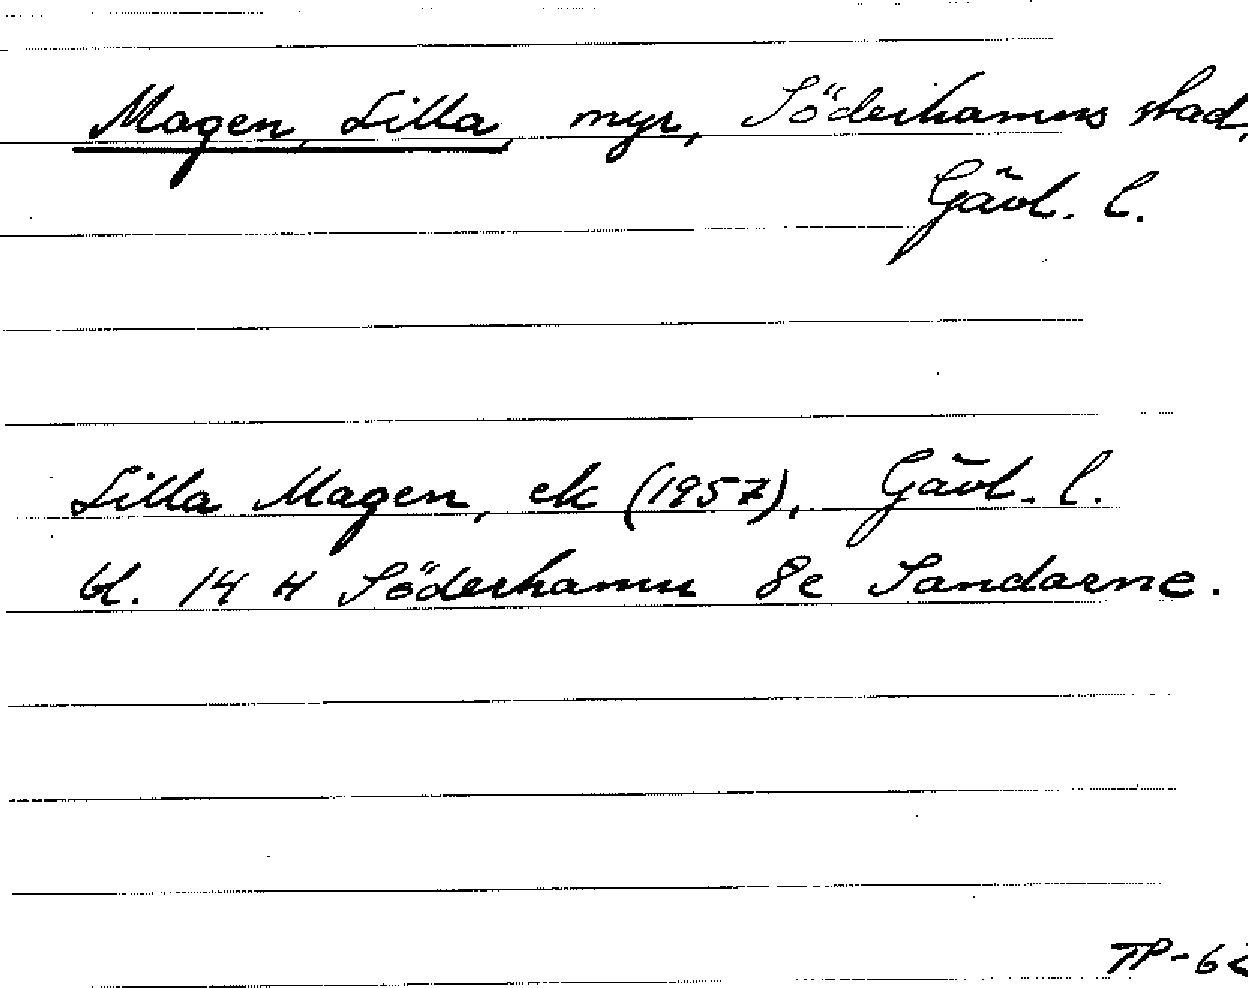 Magen, Lilla, myr, Söderhamns stad,
Gävl. l.
Lilla Magen, ek (1957), Gävl. l.
bl. 14 H Söderhamn 8e Sandarne.